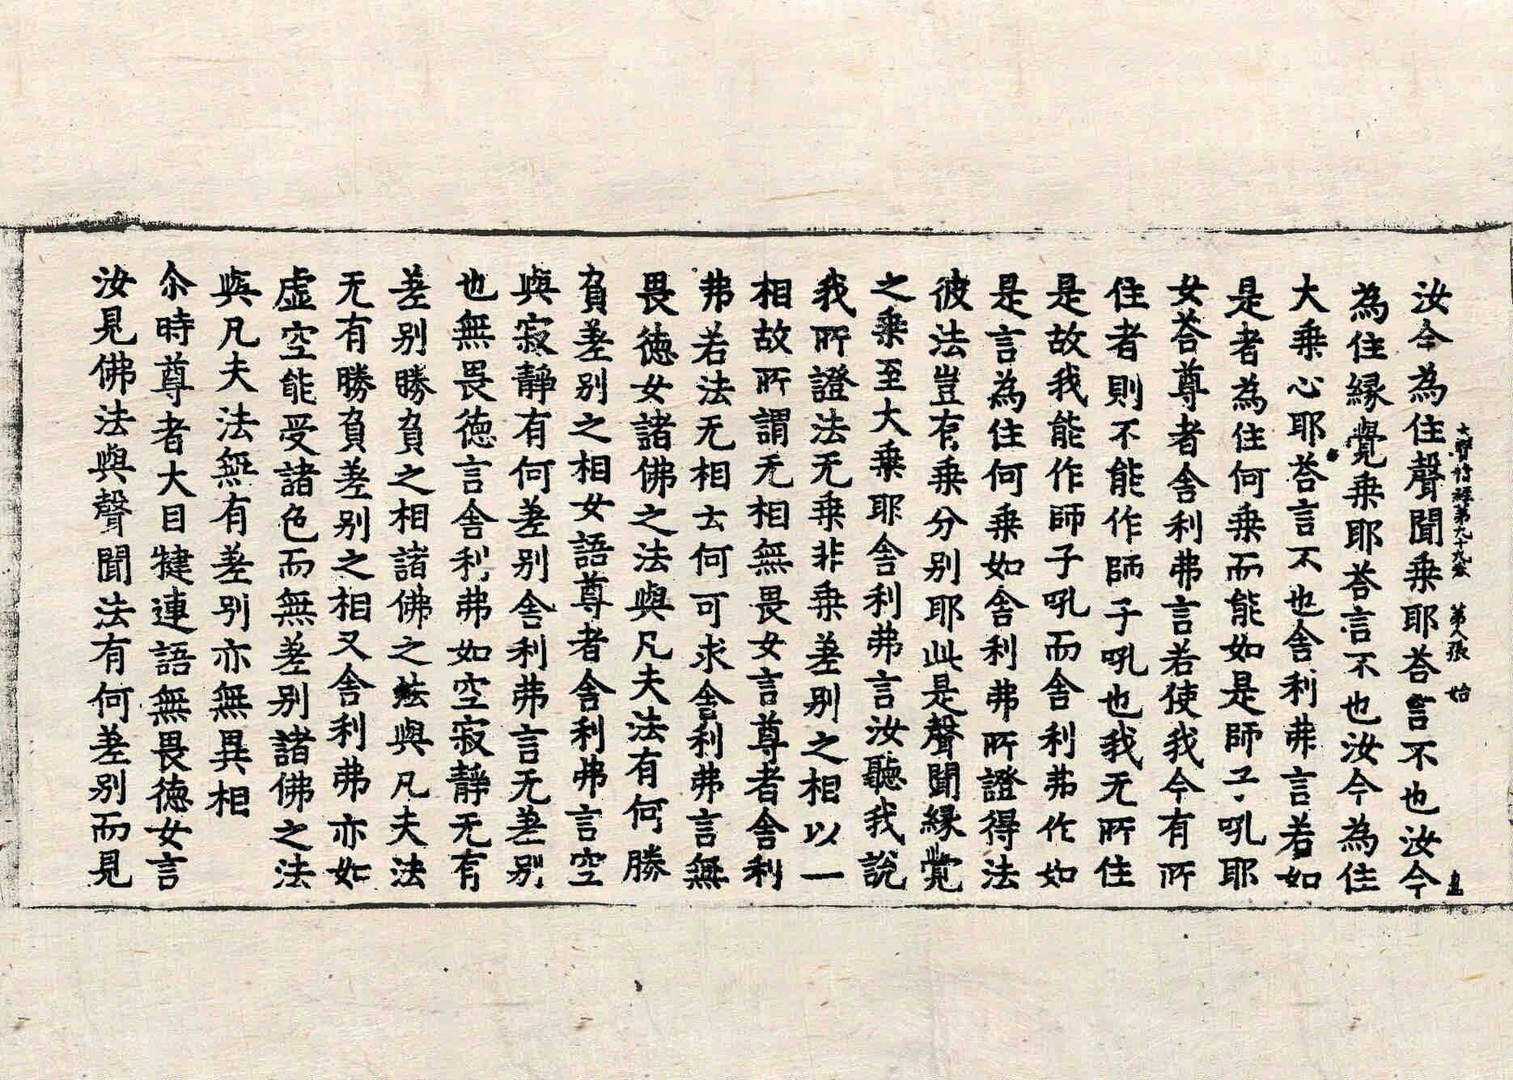 汝今為住聲聞乗耶荅言不也汝今
大寶積經第九十九卷 第八張 始
為住縁覺乗耶荅言不也汝今為住
大乗心耶荅言不也舍利弗言若如
是者為住何乗而能如是師子吼耶
女荅尊者舍利弗言若使我今有所
住者則不能作師子吼也我无所住
是故我能作師子吼而舍利弗作如
是言為住何乗如舍利弗所證得法
彼法豈有乗分別耶此是聲聞縁覺
之乗至大乗耶舍利弗言汝聽我說
我所證法无乗非乗差别之相以一
相故所謂无相無畏女言尊者舍利
弗若法无相云何可求舍利弗言無
畏德女諸佛之法與凡夫法有何勝
負差别之相女語尊者舍利弗言空
與寂靜有何差别舍利弗言无差别
也無畏德言舍利弗如空寂靜无有
差别勝負之相諸佛之法與凡夫法
无有勝負差别之相又舍利弗亦如
虛空能受諸色而無差别諸佛之法
與凡夫法無有差別亦無異相
尒時尊者大目揵連語無畏德女言
汝見佛法與聲聞法有何差别而見